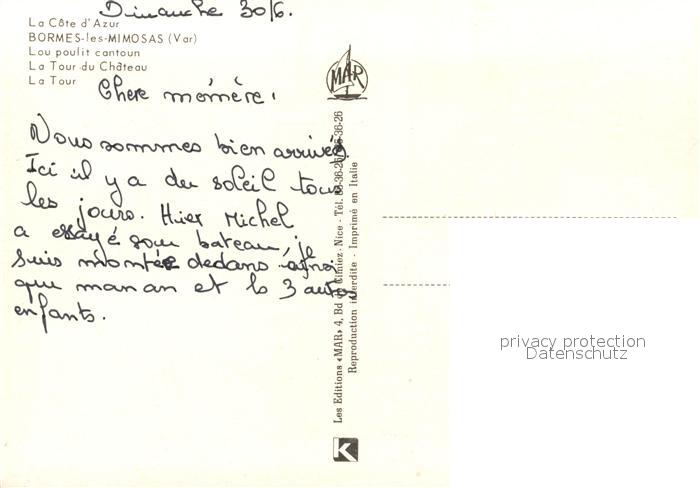 Dimanche 30/6.
La Côte d'Azur
BORMES-les-MIMOSAS (Var)
Lou poulit cantoun
La Tour du Château
La Tour
Chere mémère.
Nous sommes bien arrivés
Ici il y a du soleil tous
les jours. Hier Michel
a essayé son bateau, je
suis montée dedans ainsi
que maman et ls 3 autres
enfants.
MAR
Les Editions «MAR» 4, Bd de Cimiez - Nice - Tél. 36-26
Reproduction interdite - Imprimé en Italie
K
privacy protection
Datenschutz